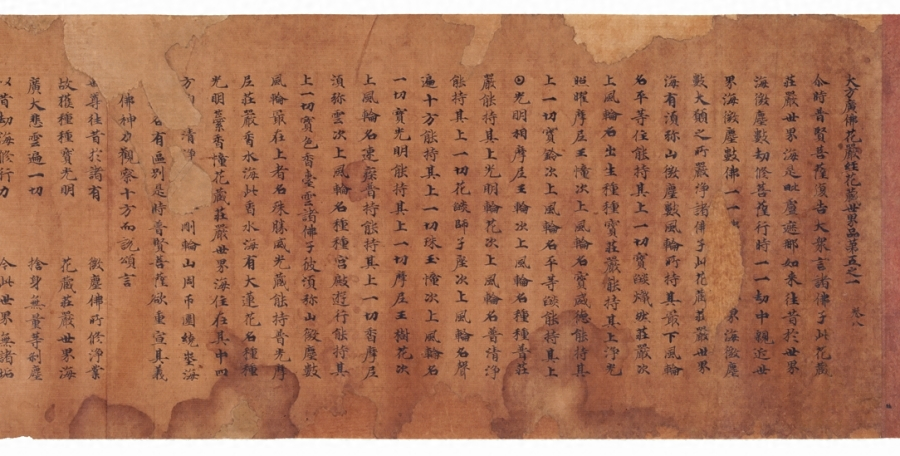 大方廣佛花嚴經花藏世界品第五之一 卷八
尒時普賢菩薩復告大衆言諸佛子此花藏
莊嚴世界海是毗盧遮那如來往昔於世界
海微塵數劫修菩薩行時一一劫中親近世
界海微塵數佛一一 界海微塵
數大願之所嚴淨諸佛子此花藏莊嚴世界
海有須弥山微塵數風輪所持其最下風輪
名平等住能持其上一切寶焰熾然莊嚴次
上風輪名出生種種寶莊嚴能持其上淨光
照曜摩尼王幢次上風輪名寶威德能持其
上一切寶鈴次上風輪名平等焰能持其上
日光明相摩尼王輪次上風輪名種種普莊
嚴能持其上光明輪花次上風輪名普清淨
能持其上一切花焰師子座次上風輪名聲
遍十方能持其上一切珠王幢次上風輪名
一切寶光明能持其上一切摩尼王樹花次
上風輪名速疾普持能持其上一切香摩尼
須弥雲次上風輪名種種宮殿遊行能持其
上一切寶色香臺雲諸佛子彼須弥山微塵數
風輪最在上者名殊勝威光藏能持普光摩
尼莊嚴香水海此香水海有大蓮花名種種
光明蘂香幢花藏莊嚴世界海住在其中四
方 清淨 剛輪山周帀圍繞 海
名有區別是時普賢菩薩欲重宣其義
佛神力觀察十方而說頌言
世尊往昔於諸有 微塵佛所修淨業
故獲種種寶光明 花藏莊嚴世界海
廣大悲雲遍一切 捨身無量等刹塵
以昔劫海修行力 今此世界無諸垢